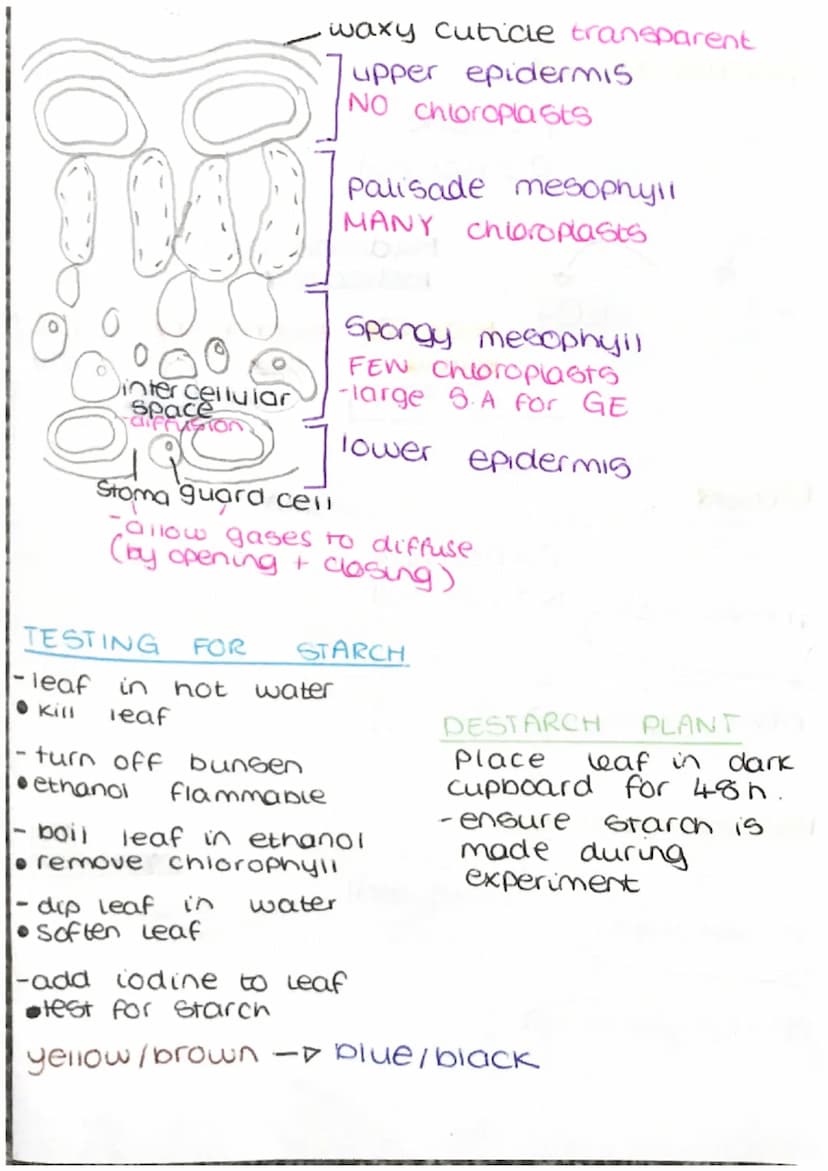 waxy cuticle transparent
upper epidermis
NO chloroplasts
palisade mesophyll
MANY chloroplasts
spongy mesophyll
FEW chloroplasts
-large S.A for GE
inter cellular
space
-diffusion
lower epidermis
stoma guard cell
-allow gases to diffuse
(by opening + closing)
TESTING FOR STARCH
-leaf in hot water
• kill leaf
- turn off bunsen
• ethanol flammable
- boil leaf in ethanol
• remove chlorophyll
- dip leaf in water
• soften leaf
-add iodine to leaf
• test for starch
yellow/brown → blue/black
DESTARCH PLANT
Place leaf in dark
cupboard for 48h.
-ensure starch is
made during
experiment